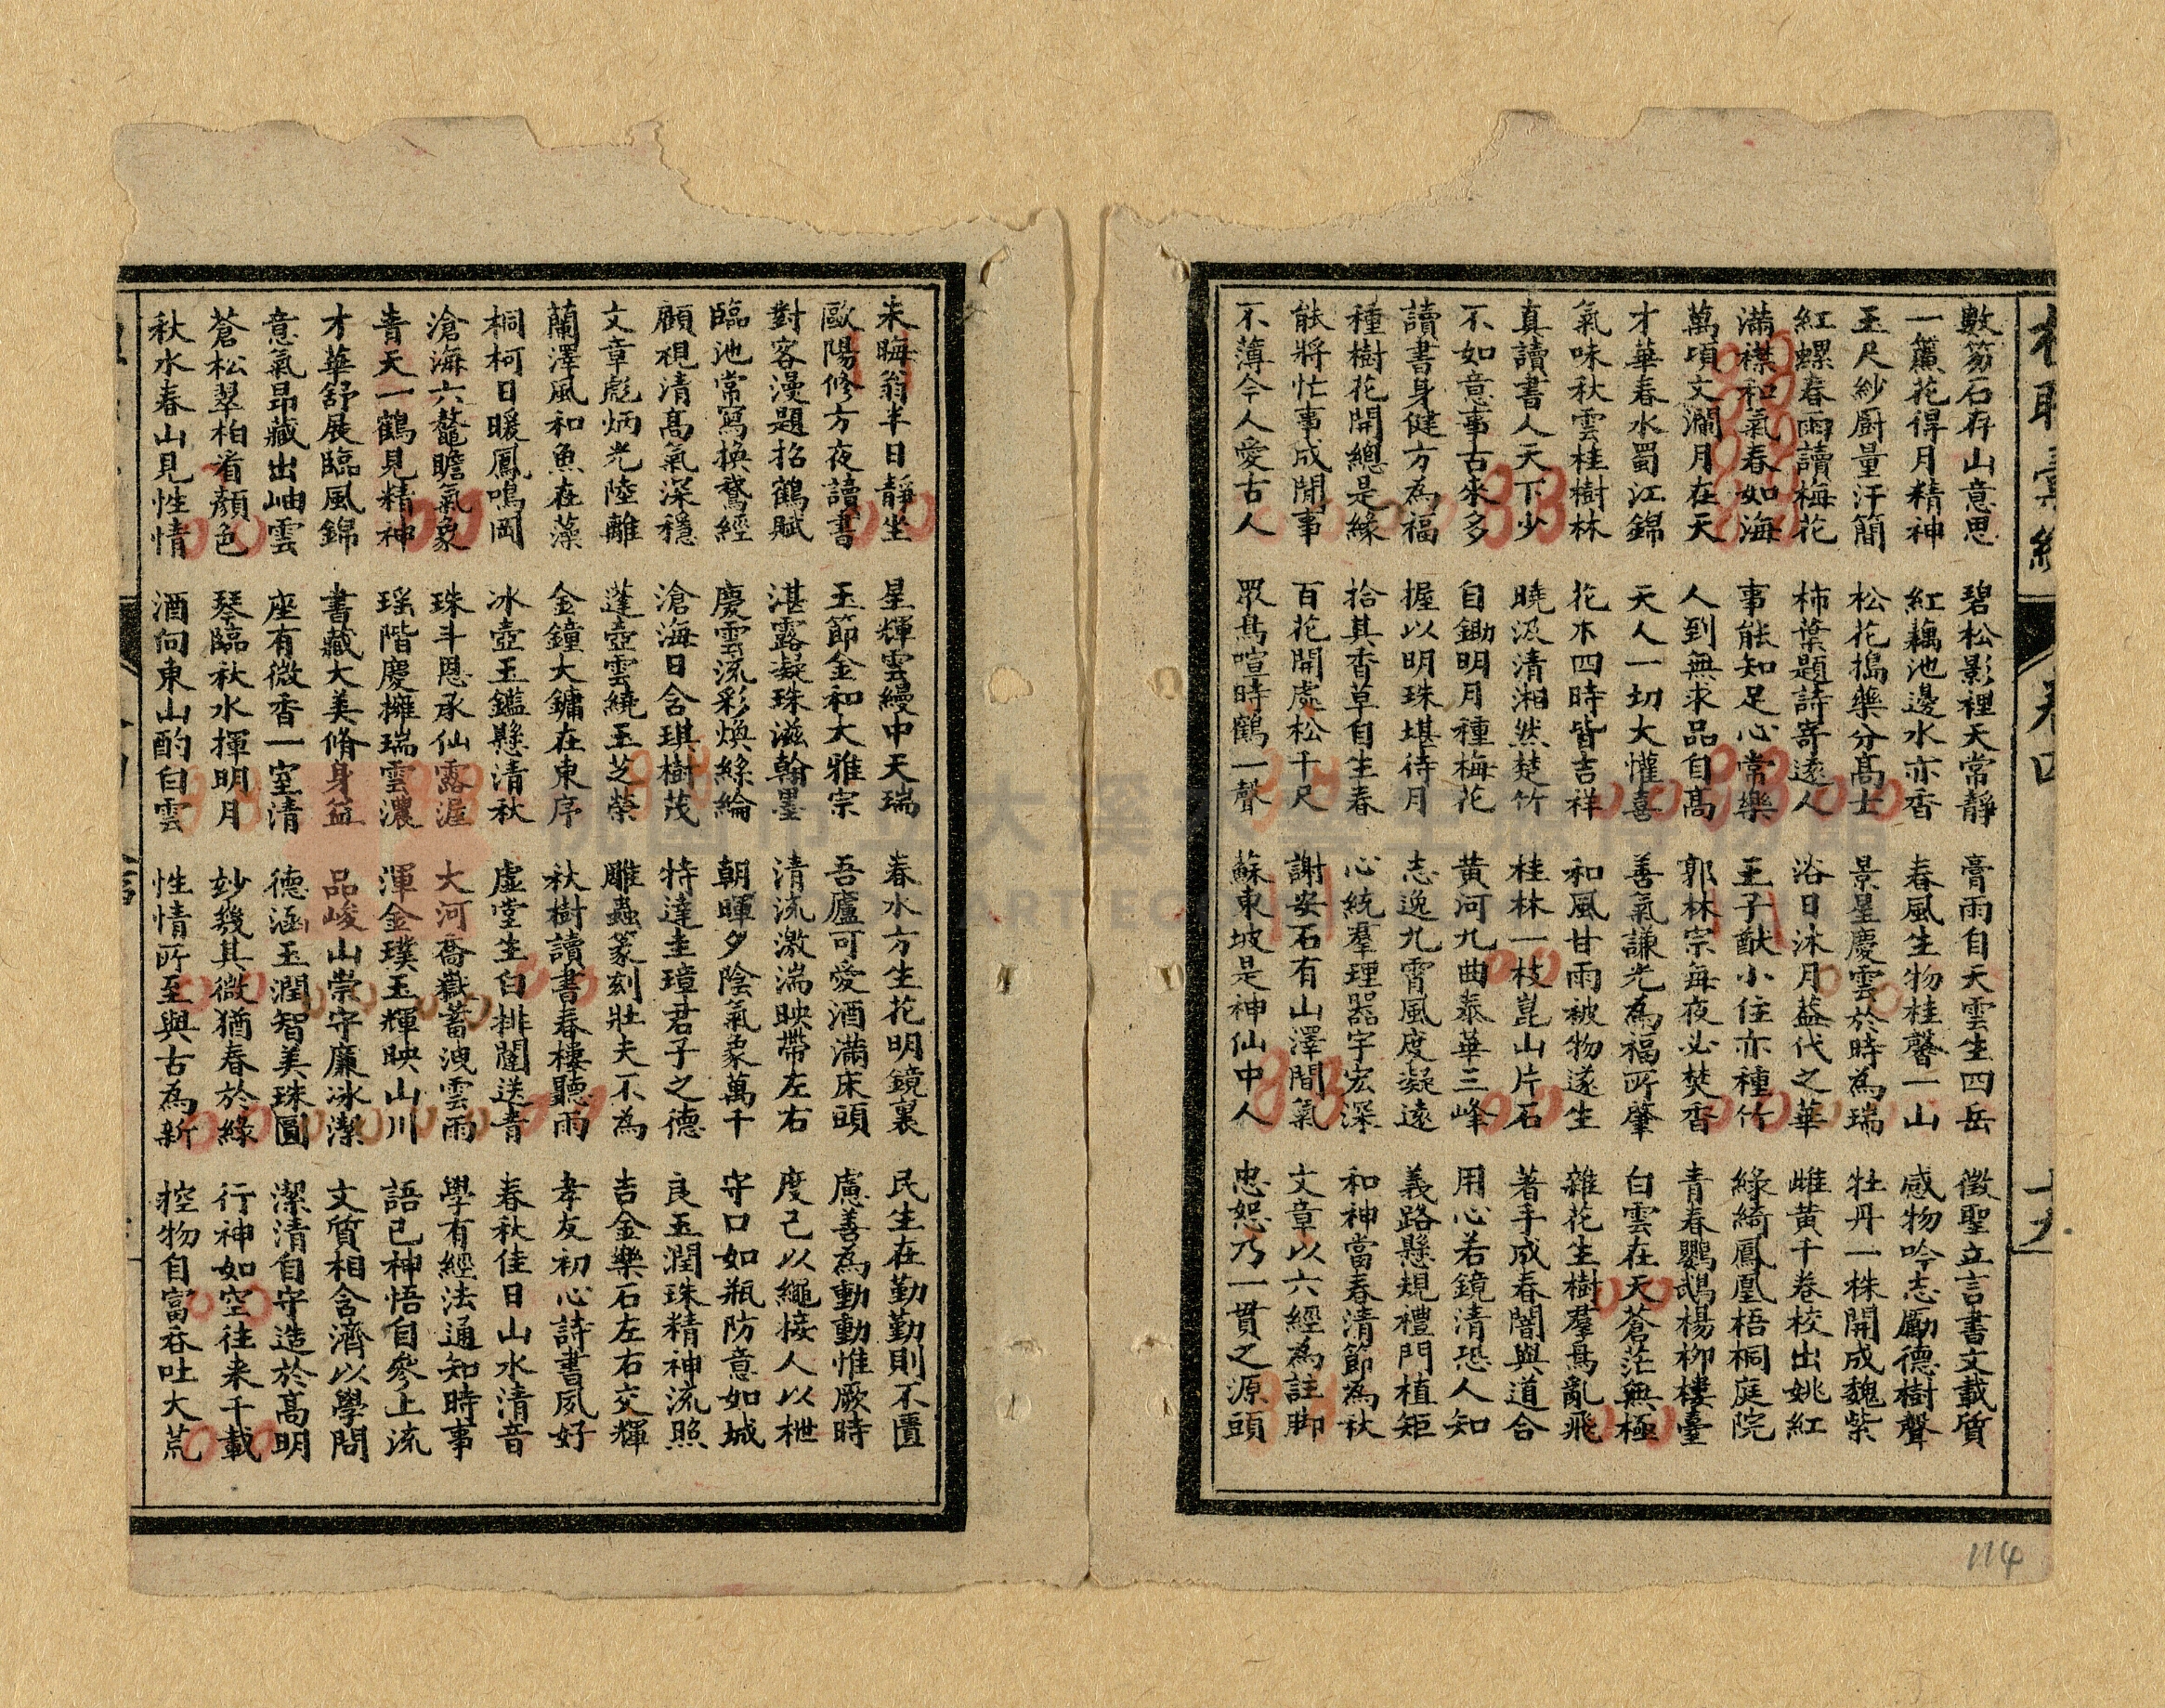 楹聯彙編 卷四 十九
數笏石存山意思 碧松影裡天常靜 膏雨自天雲生四岳 徵聖立言書文載質
一簾花得月精神 紅藕池邊水亦香 春風生物桂馨一山 感物吟志勵德樹聲
玉尺紗厨量汗簡 松花搗藥分高士 景星慶雲於時為瑞 牡丹一株開成魏紫
紅螺春雨讀梅花 柿葉題詩寄遠人 浴日沐月蓋代之華 雌黃千卷校出姚紅
滿襟和氣春如海 事能知足心常樂 王子猷小住亦種竹 綠綺鳳凰梧桐庭院
萬頃文瀾月在天 人到無求品自高 郭林宗每夜必焚香 青春鸚鵡楊柳樓臺
才華春水蜀江錦 天人一切大懽喜 善氣謙光為福所肇 白雲在天蒼茫無極
氣味秋雲桂樹林 花木四時皆吉祥 和風甘雨被物遂生 雜花生樹羣鳥亂飛
真讀書人天下少 曉汲清湘然楚竹 桂林一枝崑山片石 著手成春闇與道合
不如意事古來多 自鋤明月種梅花 黃河九曲泰華三峰 用心若鏡清恐人知
讀書身健方為福 握以明珠堪待月 志逸九霄風度凝遠 義路懸規禮門植矩
種樹花開總是緣 拾其香草自生春 心統羣理器宇宏深 和神當春清節為秋
能將忙事成閒事 百花開處松千尺 謝安石有山澤間氣 文章以六經為註脚
不薄今人愛古人 眾鳥喧時鶴一聲 蘇東坡是神仙中人 忠恕乃一貫之源頭
朱晦翁半日靜坐 星輝雲縵中天瑞 春水方生花明鏡裏 民生在勤勤則不匱
歐陽修方夜讀書 玉節金和大雅宗 吾廬可愛酒滿床頭 慮善為動動惟厥時
對客漫題招鶴賦 湛露凝珠滋翰墨 清流激湍映帶左右 度己以繩接人以枻
臨池常寫換鵞經 慶雲流彩煥絲綸 朝暉夕陰氣象萬千 守口如瓶防意如城
顧視清高氣深穩 滄海日含琪樹茂 特達圭璋君子之德 良玉潤珠精神流照
文章彪炳光陸離 蓬壺雲繞玉芝榮 雕蟲篆刻壯夫不為 吉金樂石左右交輝
蘭澤風和魚在藻 金鐘大鏞在東序 秋樹讀書春樓聽雨 孝友初心詩書夙好
桐柯日暖鳳鳴岡 冰壺玉鑑懸清秋 虛堂生白排闥送青 春秋佳日山水清音
滄海六鼇瞻氣象 珠斗恩承仙露渥 大河喬嶽蓄洩雲雨 學有經法通知時事
青天一鶴見精神 瑶階慶擁瑞雲濃 渾金璞玉輝映山川 語已神悟自參上流
才華舒展臨風錦 書藏大美脩身益 品峻山崇守廉冰潔 文質相含濟以學問
意氣昂藏出岫雲 座有微香一室清 德涵玉潤智美珠圓 潔清自守造於高明
蒼松翠柏有顏色 琴臨秋水揮明月 妙幾其微猶春於綠 行神如空往来千載
秋水春山見性情 酒向東山酌白雲 性情所至與古為新 控物自富吞吐大荒
114